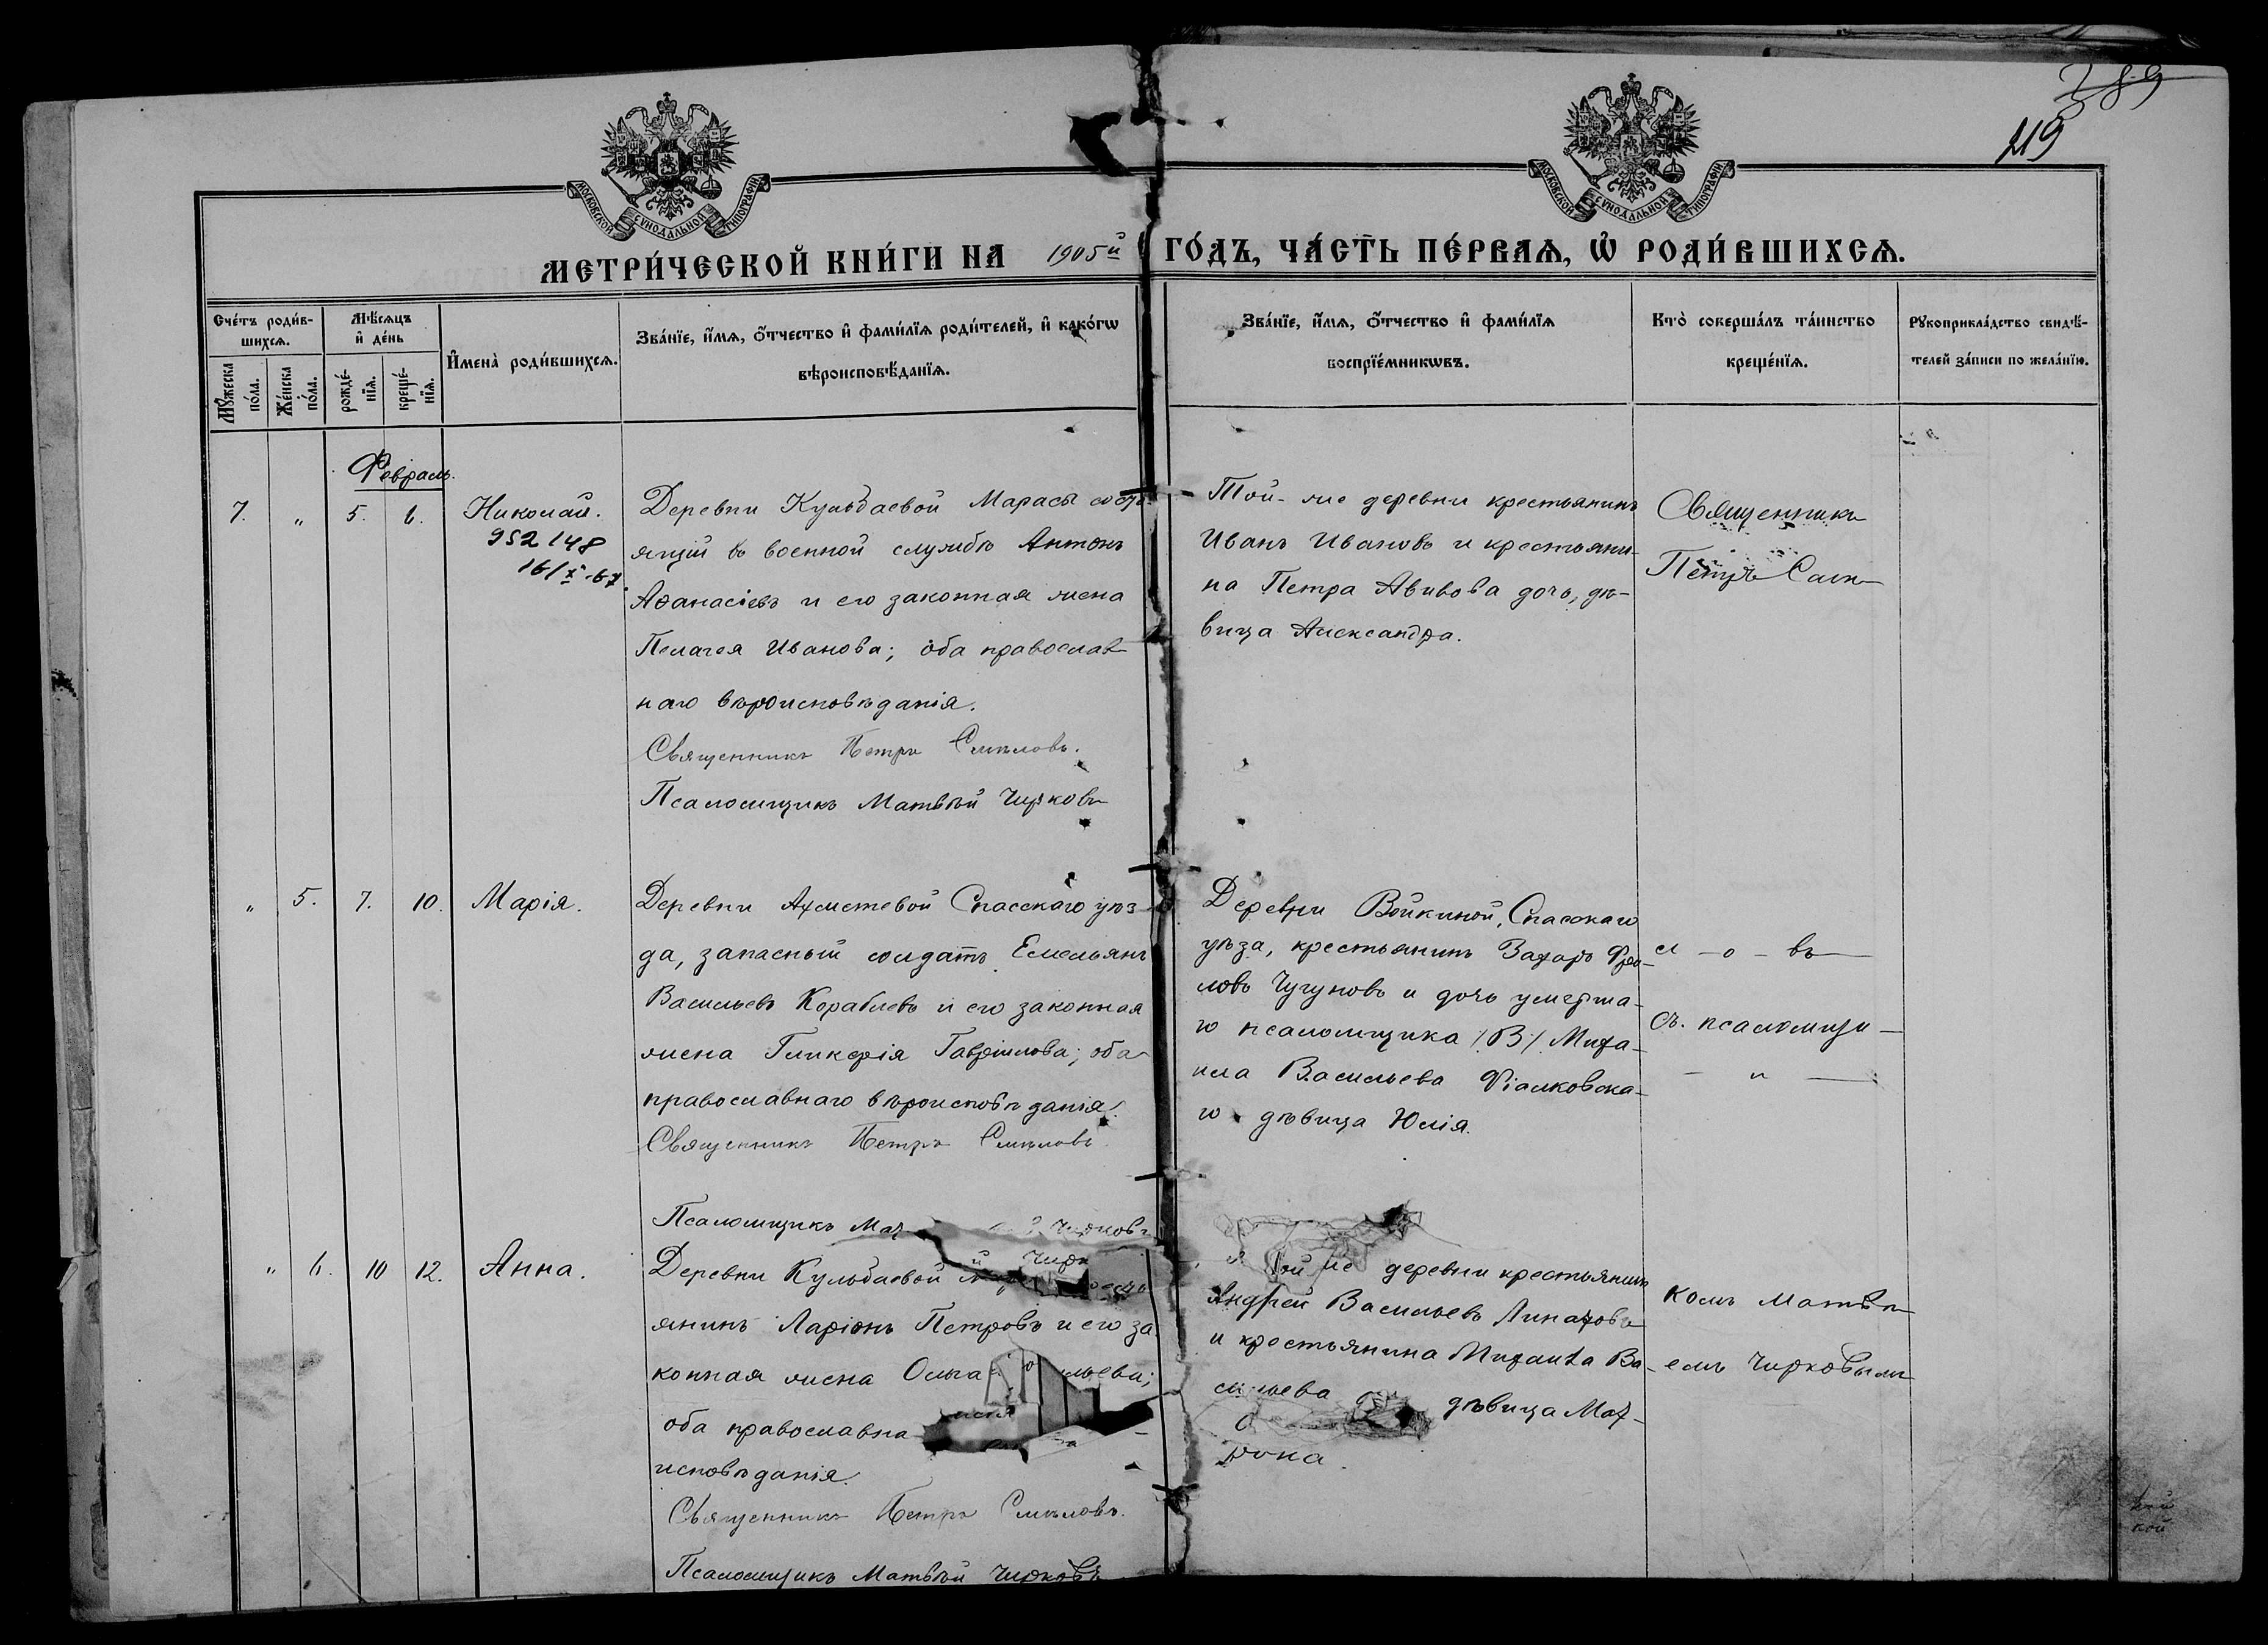 389
119
МОСКОВСКОЙ СѴНОДАЛЬНОЙ ТИПОГРАФІИ
МОСКОВСКОЙ СѴНОДАЛЬНОЙ ТИПОГРАФІИ
МЕТРИ́ЧЕСКОЙ КНИ́ГИ НА 1905й ГО́ДЪ, ЧА́СТЬ ПЕ́РВАѦ, Ѡ҆ РОДИ́ВШИХСѦ.
Сче́тъ роди́в-
шихсѧ.
Мѹ́жеска
по́ла.
Же́нска
по́ла.
Мѣ́сѧцъ
и҆ де́нь
рожде́-
нїѧ.
креще́-
нїѧ.
И҆мена̀ роди́вшихсѧ.
Зва́нїе, и҆́мѧ, ѻ҆́тчество и҆ фами́лїѧ роди́телей, и҆ како́гѡ
вѣроисповѣ́данїѧ.
Зва́нїе, и҆́мѧ, ѻ҆́тчество и҆ фами́лїѧ
воспрїе́мникѡвъ.
Кто̀ соверша́лъ та́инство
креще́нїѧ.
Рѹкоприкла́дство свидѣ́-
телей за́писи по жела́нїю.
Февраль.
7. " 5. 6. Николай.
952148
16/X-67.
Деревни Кульбаевой Марасы состо-
ящій въ военной службѣ Антонъ
Аѳанасіевъ и его законная жена
Пелагея Иванова; оба православ-
наго вѣроисповѣданія.
Священникъ Петръ Смѣловъ.
Псаломщикъ Матвѣй Чирковъ
Той-же деревни крестьянинъ
Иванъ Ивановъ и крестьяни-
на Петра Авивова дочь, дѣ-
вица Александра.
Священникъ
Петръ Смѣ-
" 5. 7. 10. Марія.
Деревни Ахметевой Спасскаго уѣз-
да, запасный солдатъ Емельянъ
Васильевъ Кораблевъ и его законная
жена Гликерія Гавріилова; оба
православнаго вѣроисповѣданія.
Священникъ Петръ Смѣловъ
Псаломщикъ Мат Чирковъ
Деревни Войкиной, Спасскаго
уѣзда, крестьянинъ Захаръ Фро-
ловъ Чугуновъ и дочь умерша-
го псаломщика /В/ Миха-
ила Васильева Фіалковска-
го дѣвица Юлія.
л - о - въ
съ псаломщи-
- " -
" 6. 10 12. Анна.
Деревни Кульбаевой
янинъ Ларіонъ Петровъ и его за
конная жена Ольга льева;
оба православна -
исповѣданія.
Священникъ Петръ Смѣловъ.
Псаломщикъ Матвѣй Чирковъ
ой же деревни крестьянинъ
Андрей Васильевъ Липатовъ
и крестьянина Михаила Ва-
сильева дѣвица Мат-
рона.
комъ Матвѣ-
емъ Чирковымъ